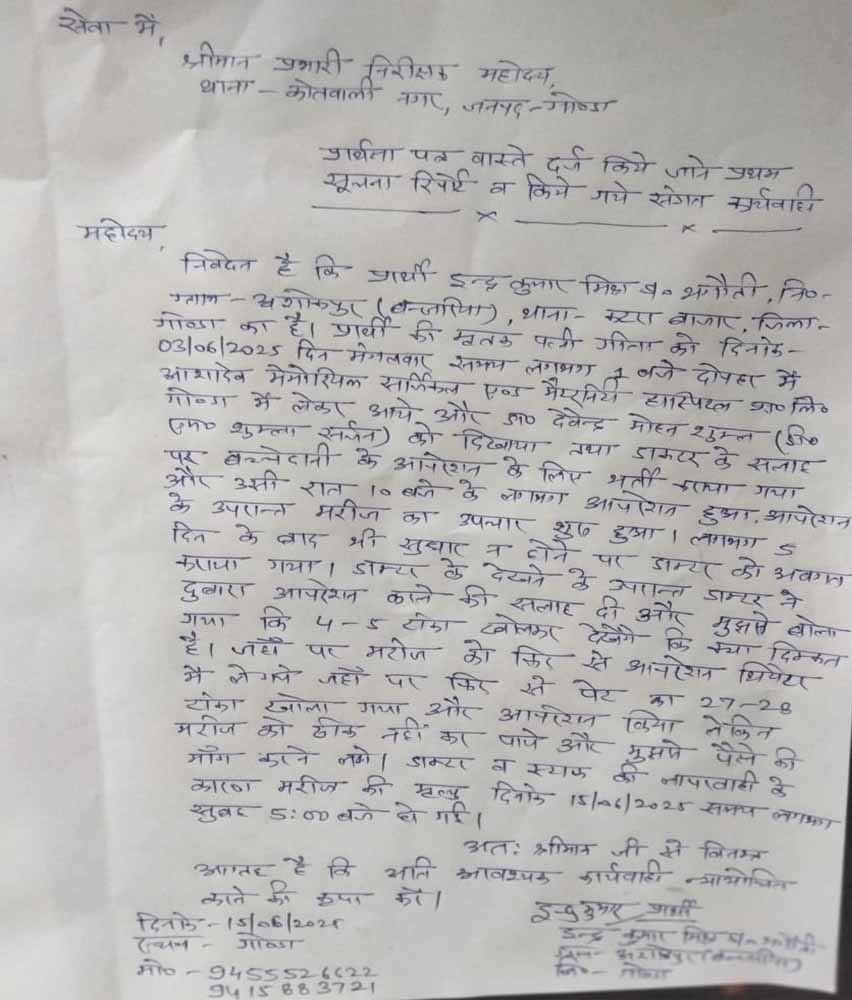 सेवा में,
श्रीमान प्रभारी निरीक्षक महोदय,
थाना - कोतवाली नगर, जनपद - गोण्डा
प्रार्थना पत्र वास्ते दर्ज किये जाने प्रथम
सूचना रिपोर्ट व किये गये संगत कार्यवाही
महोदय,
निवेदन है कि प्रार्थी इन्द्र कुमार मिश्र पु० भगौती, नि०-
ग्राम - अशोकपुर (बन्जरिया), थाना - कटरा बाजार, जिला -
गोण्डा का है। प्रार्थी की मृतक पत्नी गीता को दिनांक -
03/06/2025 दिन मंगलवार समय लगभग 1 बजे दोपहर में
आशादेव मेमोरियल सर्जिकल एण्ड मैटरनिटी हास्पिटल प्रा० लि०
गोण्डा में लेकर आये और डा० देवेन्द्र मोहन शुक्ल (डी०
एम० शुक्ला सर्जन) को दिखाया तथा डाक्टर के सलाह
पर बच्चेदानी के आपरेशन के लिए भर्ती कराया गया
और उसी रात 10 बजे के लगभग आपरेशन हुआ, आपरेशन
के उपरान्त मरीज का उपचार शुरू हुआ। लगभग 5
दिन के बाद भी सुधार न होने पर डाक्टर को अवगत
कराया गया। डाक्टर के देखने के उपरान्त डाक्टर ने
दुबारा आपरेशन करने की सलाह दी और मुझसे बोला
गया कि 4-5 टांका खोलकर देखेंगे कि क्या दिक्कत
है। जहाँ पर मरीज को फिर से आपरेशन थियेटर
में ले गये जहाँ पर फिर से पेट का 27-28
टांका खोला गया और आपरेशन किया लेकिन
मरीज को ठीक नहीं कर पाये और मुझसे पैसे की
माँग करने लगे। डाक्टर व स्टाफ की लापरवाही के
कारण मरीज की मृत्यु दिनांक 15/06/2025 समय लगभग
सुबह 5:00 बजे हो गई।
अत: श्रीमान जी से विनम्र
आग्रह है कि अति आवश्यक कार्यवाही न्यायोचित
करने की कृपा करें।
दिनांक - 15/06/2025
स्थान - गोण्डा
मो० - 9455526622
9415883721
इन्द्र कुमार प्रार्थी
इन्द्र कुमार मिश्र पु० भगौती
अशोकपुर (बन्जरिया)
जि० - गोण्डा